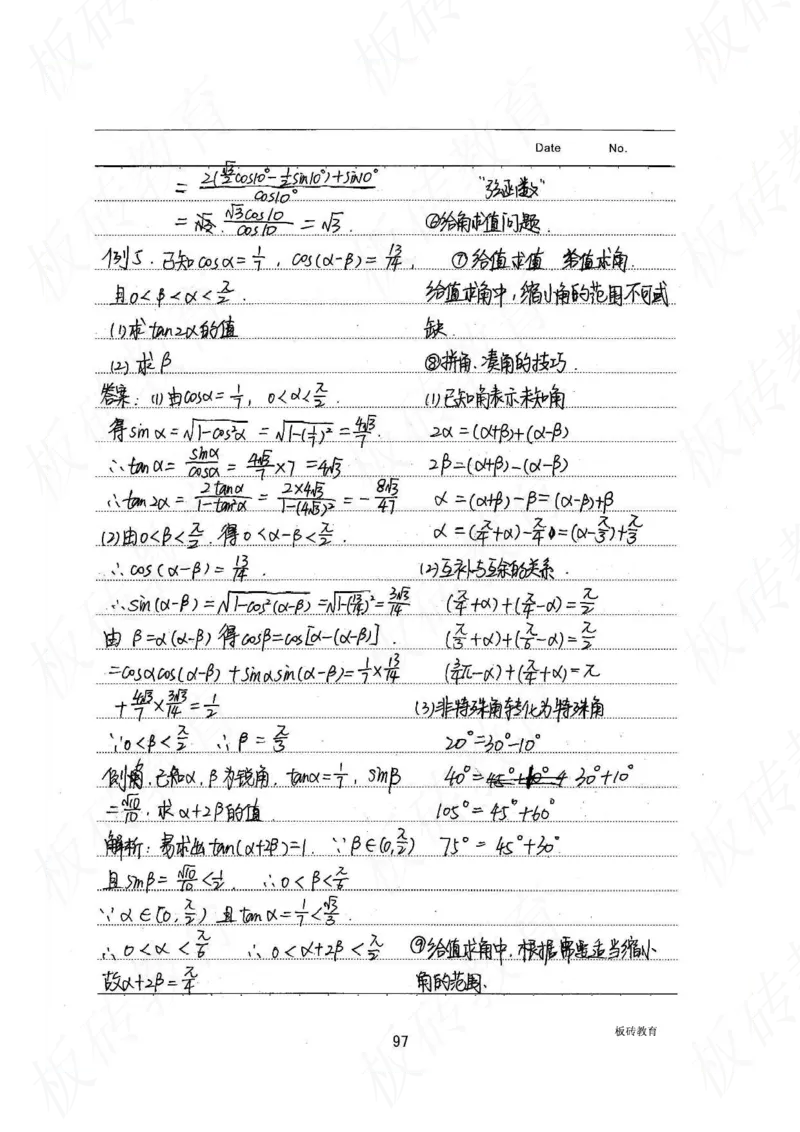 Date No.
= 2(√3/2 cos10° - 1/2 sin10°) + sin10° / cos10°
= √3cos10 / cos10 = √3.
例5. 已知cosα = 1/7, cos(α-β) = 13/14,
且0<β<α<π/2.
(1)求tan2α的值
(2)求β
答案: (1)由cosα = 1/7, 0<α<π/2.
得sinα = √1-cos²α = √1-(1/7)² = 4√3/7
∴tanα = sinα/cosα = 4√3/7 × 7 = 4√3
∴tan2α = 2tanα/1-tan²α = 2×4√3/1-(4√3)² = - 8√3/47
(2)由0<β<π/2, 得0<α-β<π/2.
∴cos(α-β) = 13/14.
∴sin(α-β) = √1-cos²(α-β) = √1-(13/14)² = 3√3/14
由 β=α(α-β) 得cosβ=cos[α-(α-β)].
=cosαcos(α-β)+sinαsin(α-β) = 1/7 × 13/14
+ 4√3/7 × 3√3/14 = 1/2
∵0<β<π/2 ∴β = π/3
例角, 已知α, β为锐角, tanα = 1/7, sinβ
= √10/10, 求α+2β的值
解析: 易求出tan(α+2β)=1. ∵β∈(0, π/2)
且sinβ = √10/10 < 1/2. ∴0<β<π/6
∵α∈[0, π/2) 且tanα = 1/7 < √3/3.
∴0<α<π/6 ∴0<α+2β<π/2
故α+2β = π/4
"弦函数"
⑥给角求值问题.
⑦给值求值 给值求角.
给值求角中, 缩小角的范围不可或
缺.
⑧拼角、凑角的技巧.
(1)已知角表示未知角
2α = (α+β)+(α-β)
2β = (α+β)-(α-β)
α = (α+β)-β = (α-β)+β
α = (π/4+α)-π/4 = (α-π/3)+π/3
(2)互补与互余的关系.
(π/4+α)+(π/4-α) = π/2
(π/3+α)+(π/6-α) = π/2
(3/4π-α)+(π/4+α) = π
(3)非特殊角转化为特殊角
20° = 30°-10°
40° = 30°+10°
105° = 45°+60°
75° = 45°+30°
⑨给值求角中, 根据需要适当缩小
角的范围.
97
板砖教育